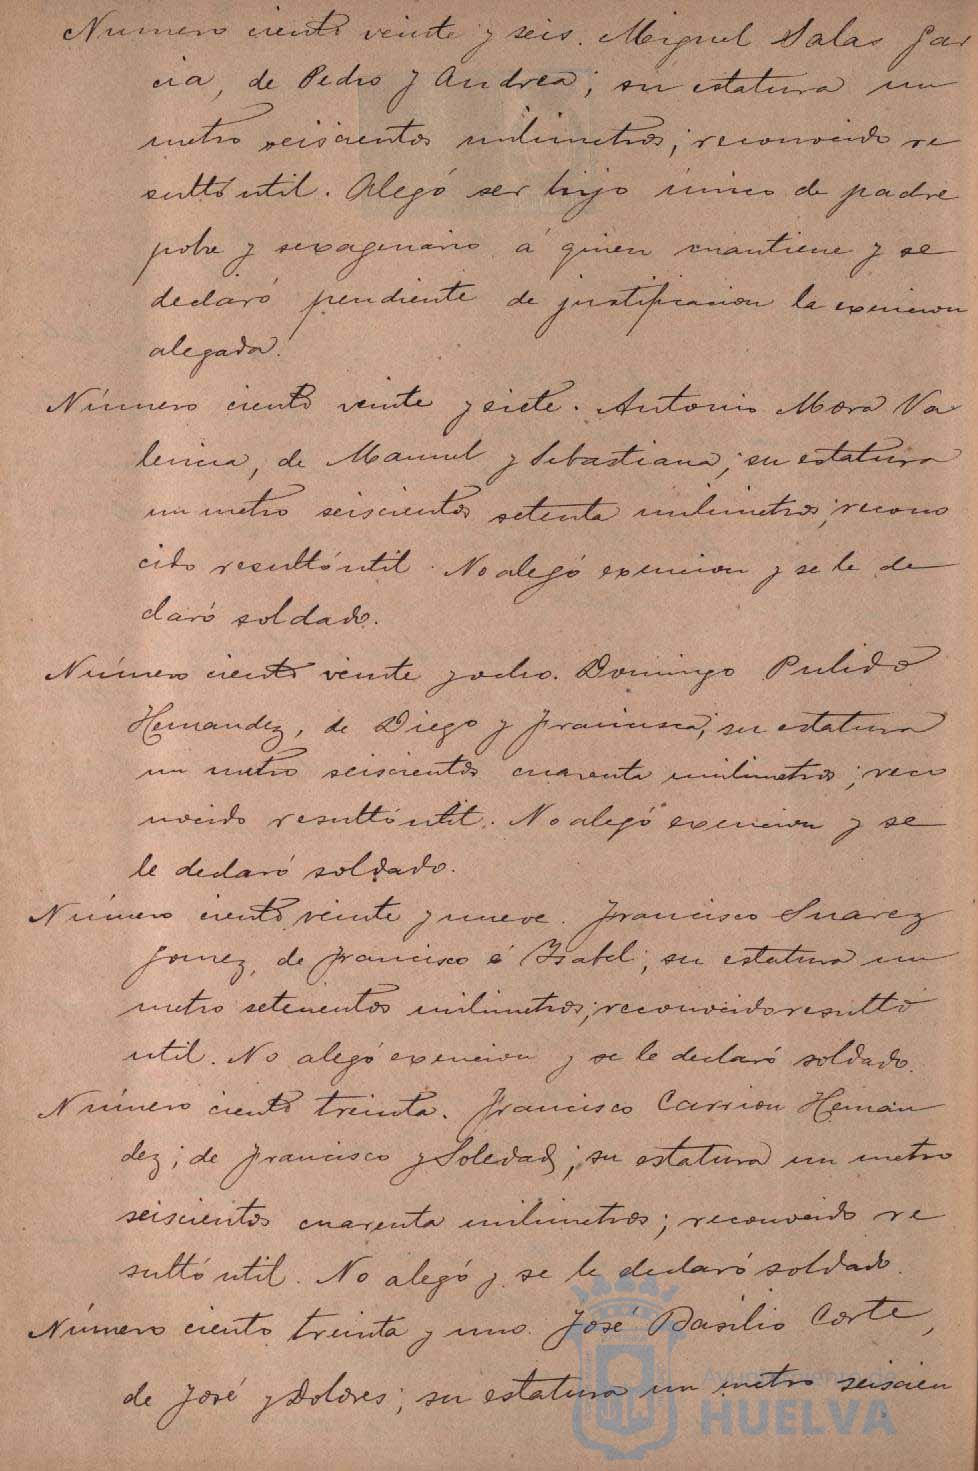 Numero ciento veinte y seis. Miguel Salas Gar
cia, de Pedro y Andrea; su estatura un
metro seiscientos milimetros; reconocido re
sultó util. Alegó ser hijo único de padre
pobre y sexagenario á quien mantiene y se
declaró pendiente de justificacion la exencion
alegada.
Número ciento veinte y siete. Antonio Mora Va
lencia, de Manuel y Sebastiana; su estatura
un metro seiscientos setenta milimetros; recono
cido resultó util. No alegó exencion y se le de
claró soldado.
Número ciento veinte y ocho. Domingo Pulido
Hernandez, de Diego y Francisca; su estatura
un metro seiscientos cuarenta milimetros; reco
nocido resultó util. No alegó exencion y se
le declaró soldado.
Número ciento veinte y nueve. Francisco Suarez
Gomez, de Francisco é Isabel; su estatura un
metro setecientos milimetros; reconocido resultó
util. No alegó exencion y se le declaró soldado.
Número ciento treinta. Francisco Carrion Hernan
dez; de Francisco y Soledad; su estatura un metro
seiscientos cuarenta milimetros; reconocido re
sultó util. No alegó y se le declaró soldado.
Número ciento treinta y uno. José Basilio Corte,
de José y Dolores; su estatura un metro seiscien
Ayuntamiento de
HUELVA